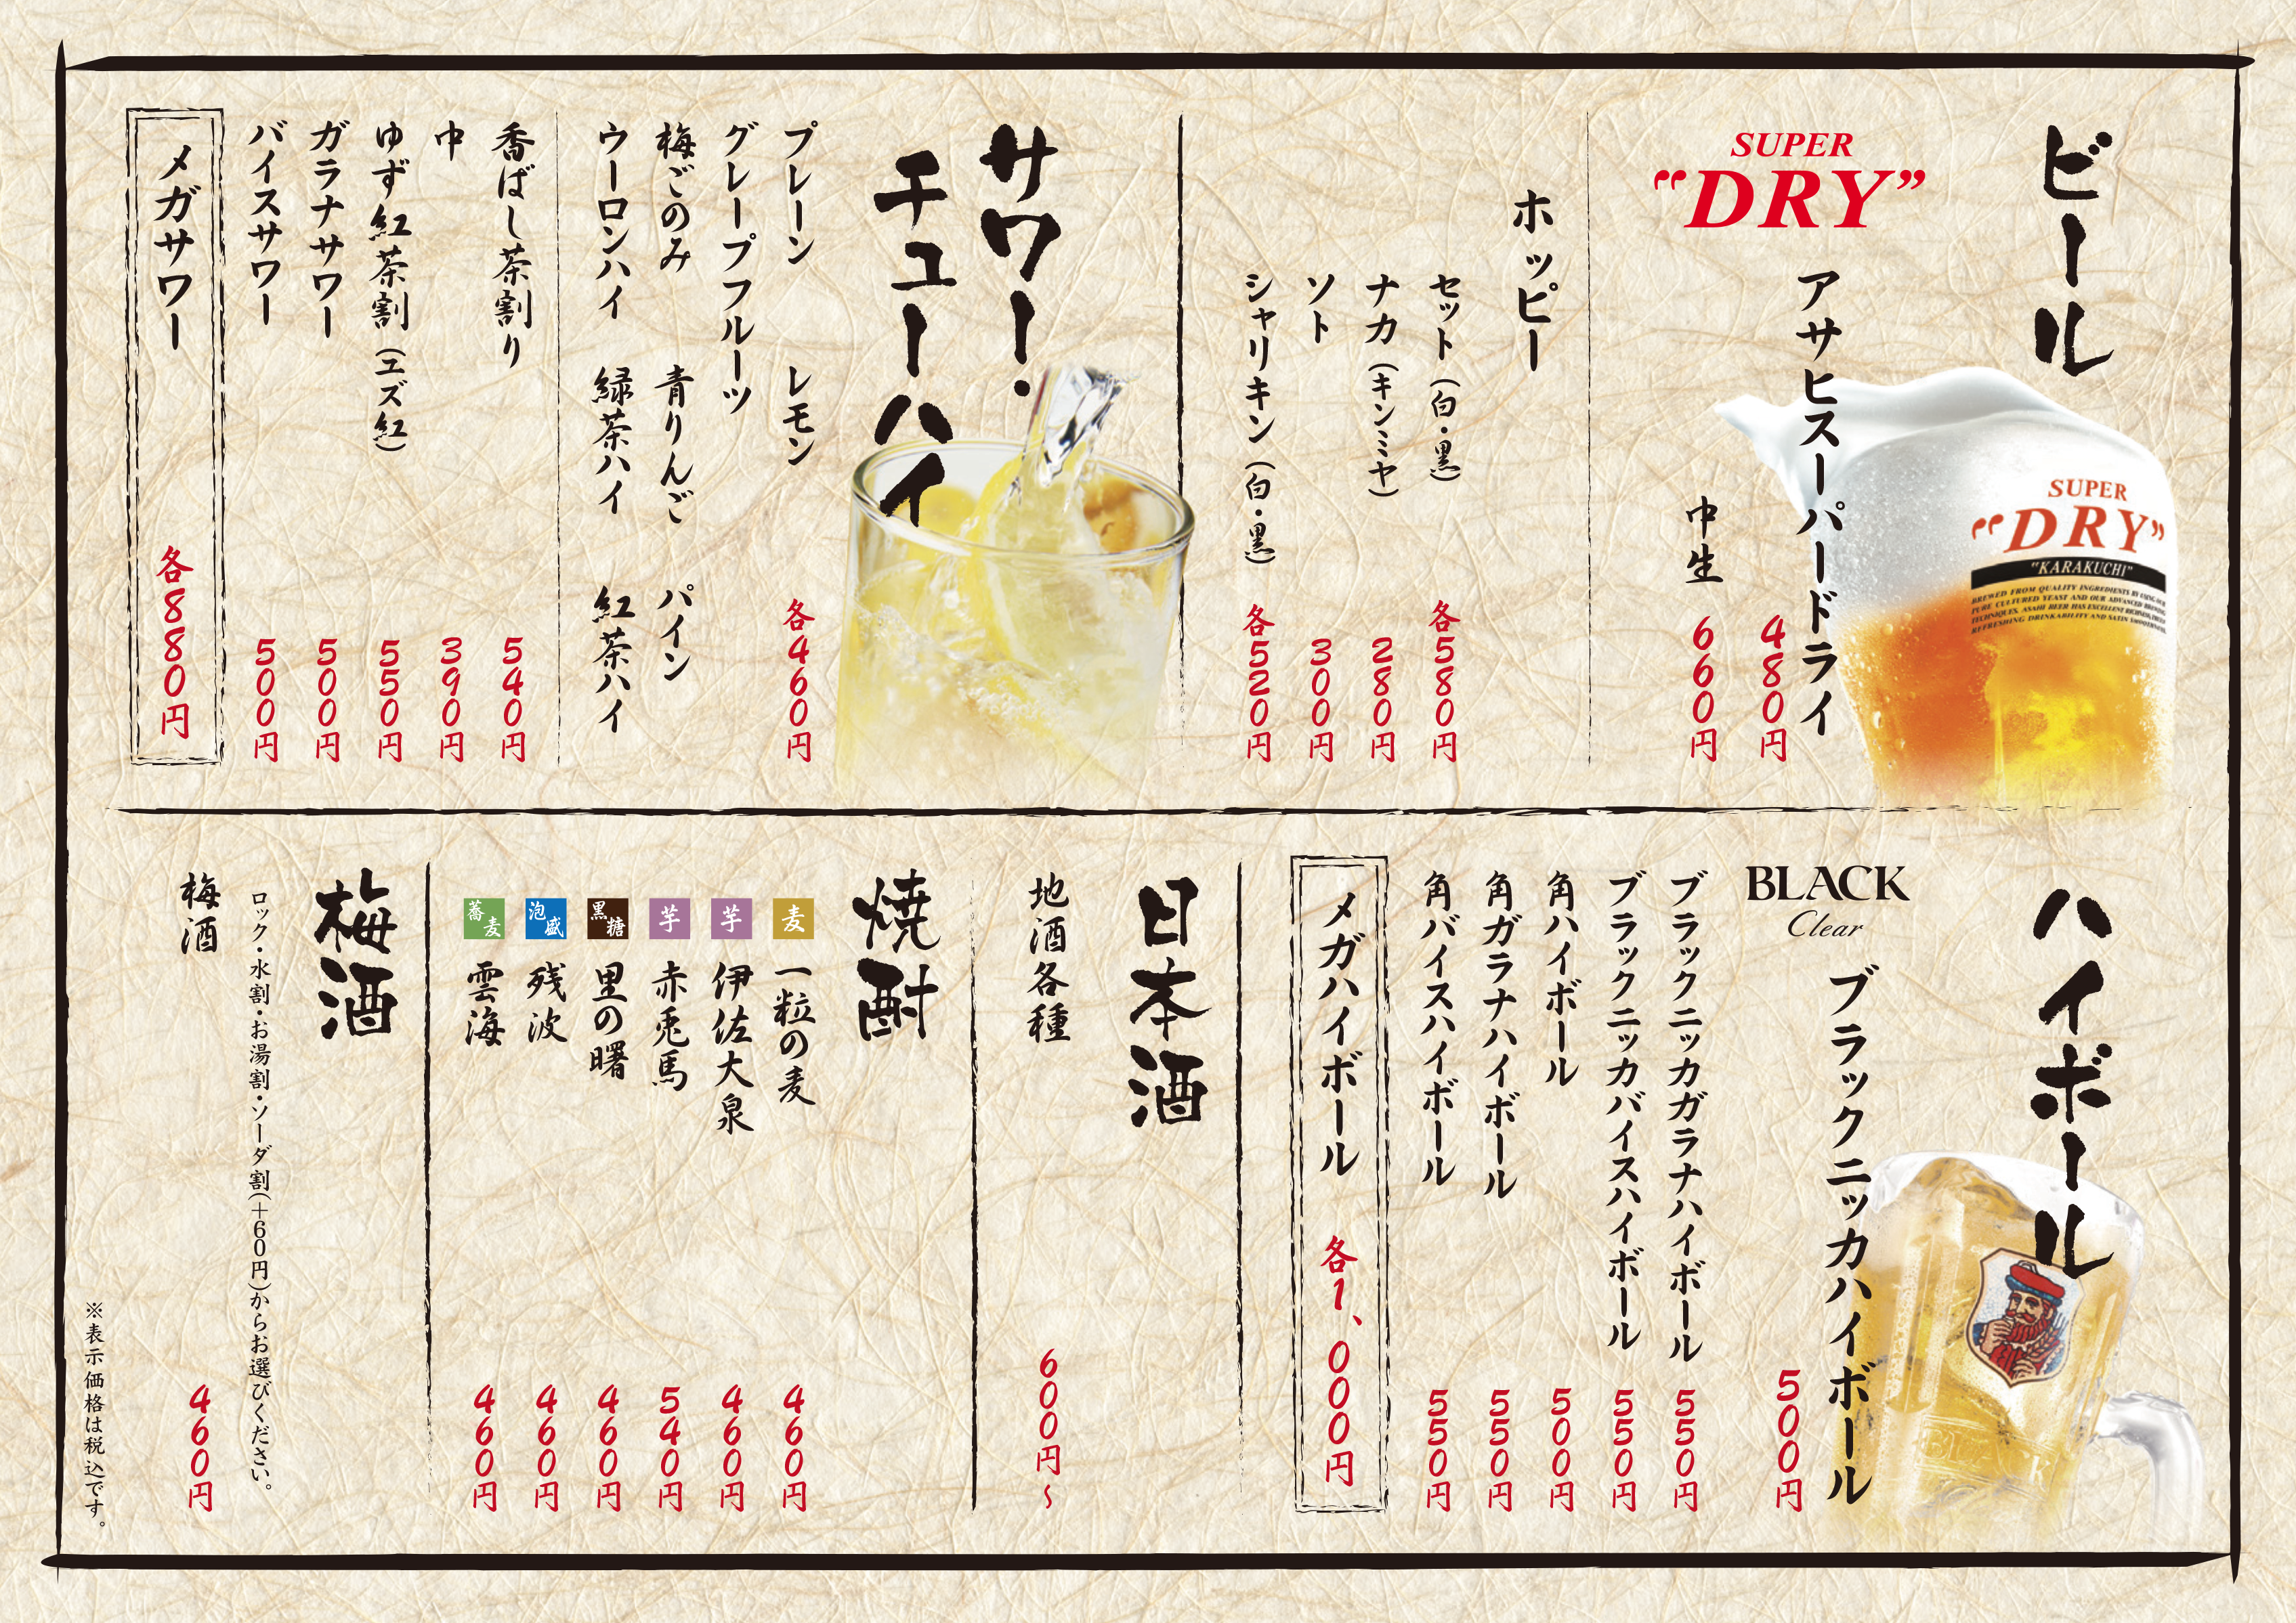 ビール
SUPER
"DRY"
アサヒスーパードライ
480円
中生
660円
SUPER
"DRY"
"KARAKUCHI"
BREWED FROM QUALITY INGREDIENTS BY USING OUR
PURE CULTURED YEAST AND OUR ADVANCED BREWING
TECHNIQUES. ASAHI BEER HAS EXCELLENT RICHNESS,
REFRESHING DRINKABILITY AND SATIN SMOOTHNESS.
ホッピー
セット(白・黒) 各580円
ナカ(キンミヤ) 280円
ソト 300円
シャリキン(白・黒) 各520円
サワー・
チューハイ
プレーン レモン 各460円
グレープフルーツ
梅ごのみ 青りんご パイン
ウーロンハイ 緑茶ハイ 紅茶ハイ
香ばし茶割り 540円
中 390円
ゆず紅茶割(エズ紅) 550円
ガラナサワー 500円
バイスサワー 500円
メガサワー 各880円
ハイボール
BLACK
Clear
ブラックニッカハイボール
500円
ブラックニッカガラナハイボール 550円
ブラックニッカバイスハイボール 550円
角ハイボール 500円
角ガラナハイボール 550円
角バイスハイボール 550円
メガハイボール 各1、000円
日本酒
地酒各種 600円〜
焼酎
麦 一粒の麦 460円
芋 伊佐大泉 460円
芋 赤兎馬 540円
黒糖 里の曙 460円
泡盛 残波 460円
蕎麦 雲海 460円
梅酒
ロック・水割・お湯割・ソーダ割(+60円)からお選びください。
梅酒 460円
※表示価格は税込です。